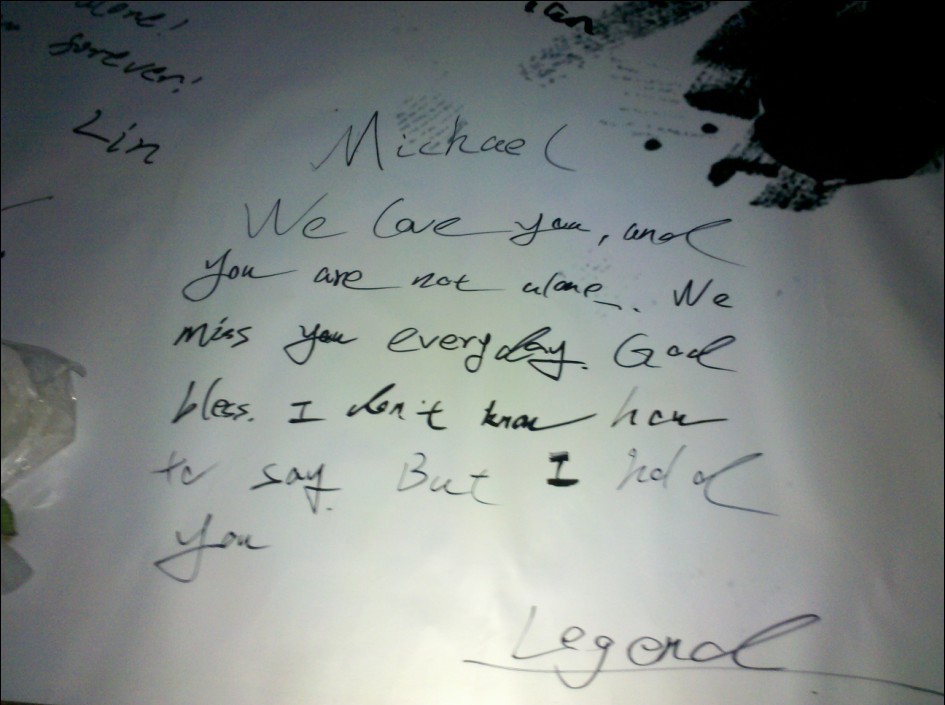 forever!
Lin
Michael
We love you, and
you are not alone. We
miss you everyday. God
bless. I don't know how
to say. But I hold
you
Legend